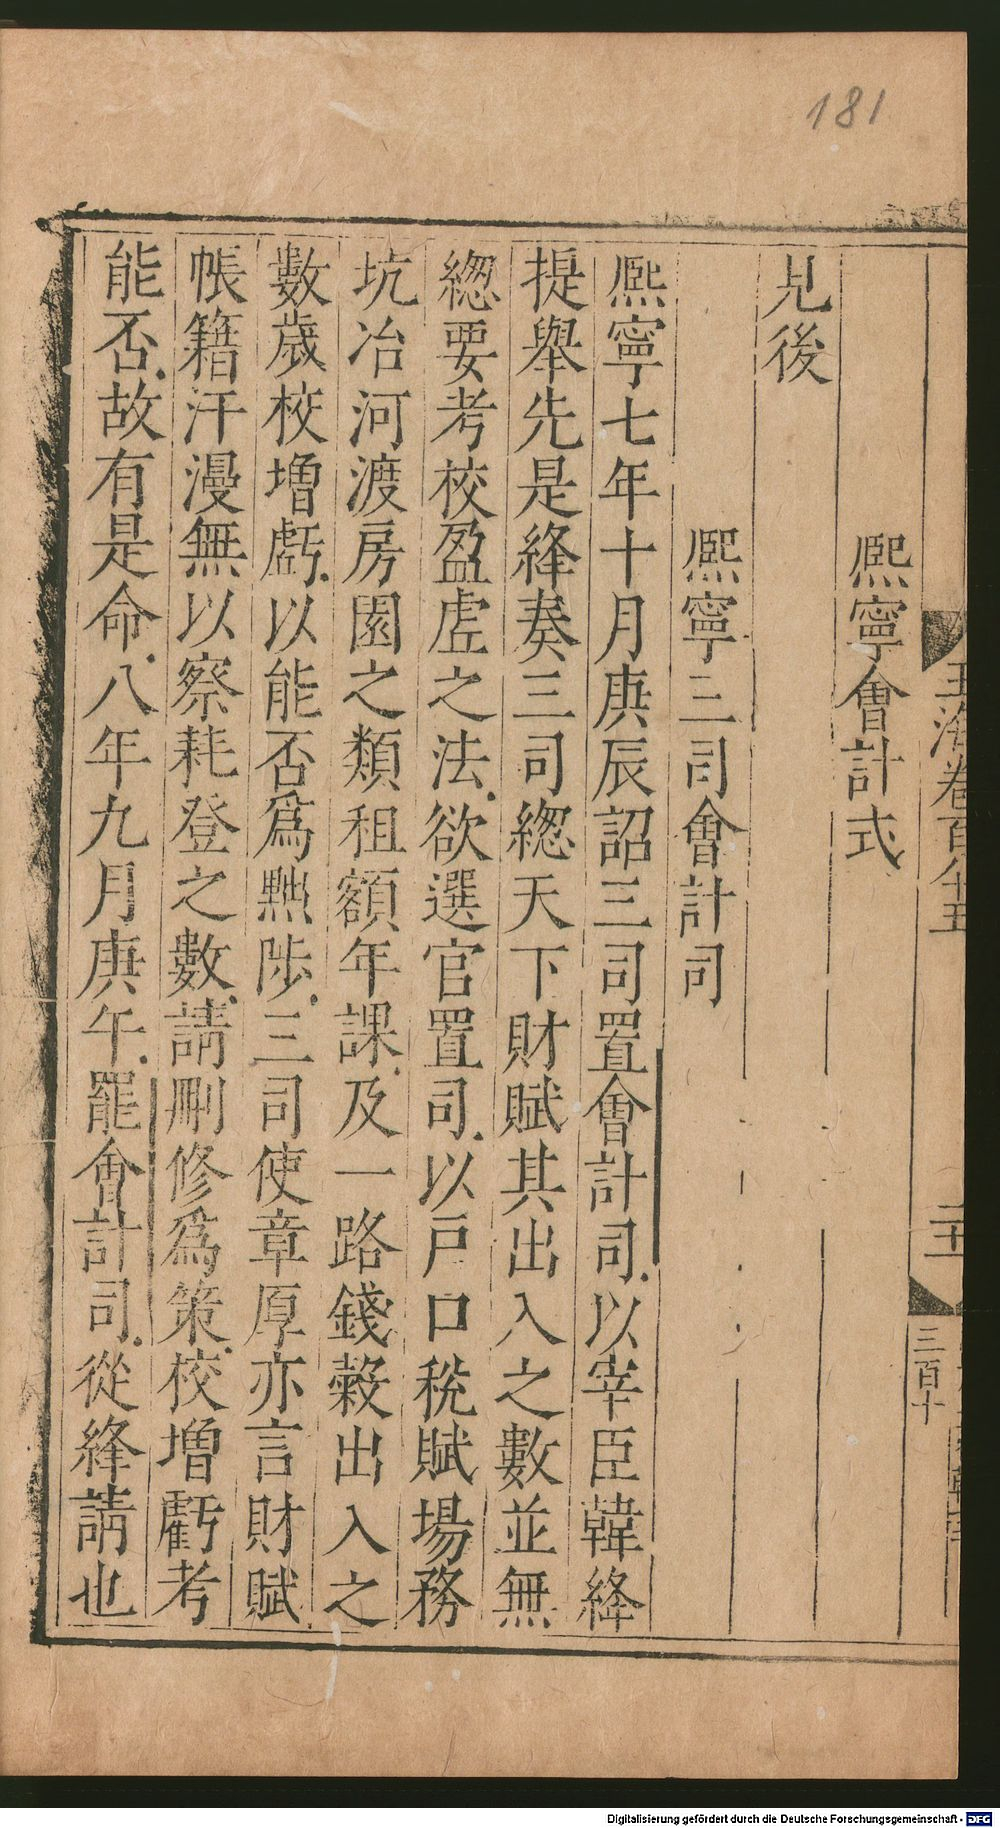 181
玉海卷百八十五
三百十
熙寧會計式
見後
熙寧三司會計司
熙寧七年十月庚辰詔三司置會計司以宰臣韓絳
提舉先是絳奏三司緫天下財賦其出入之數並無
緫要考校盈虛之法欲選官置司以戸口稅賦場務
坑冶河渡房園之類租額年課及一路錢穀出入之
數歲校增虧以能否爲黜陟三司使章厚亦言財賦
帳籍汗漫無以察耗登之數請刪修爲策校增虧考
能否故有是命八年九月庚午罷會計司從絳請也
Digitalisierung gefördert durch die Deutsche Forschungsgemeinschaft - DFG